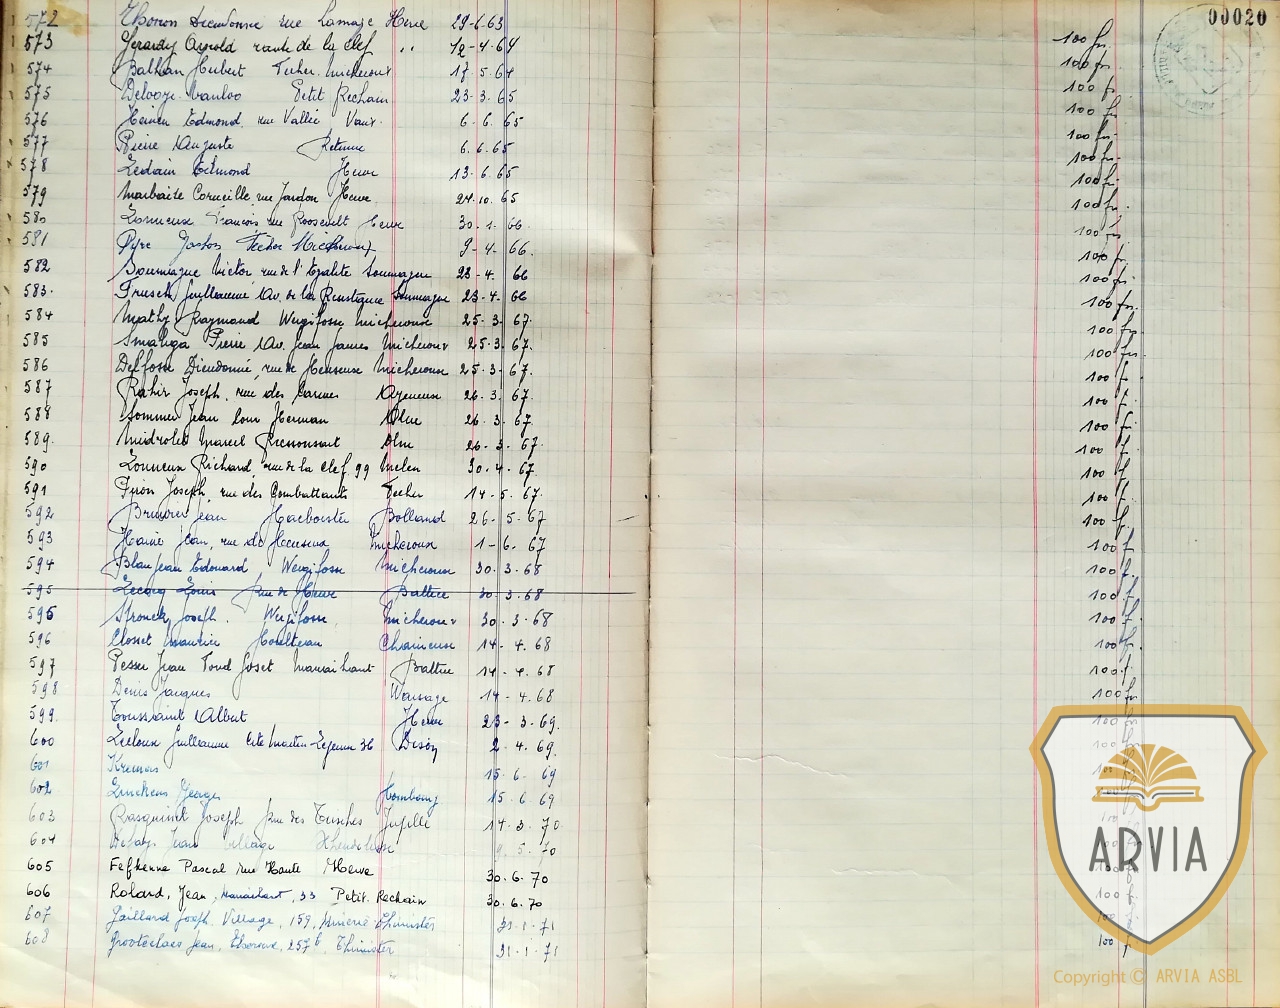 00020
572 Thonon Dieudonné rue Lamaye Herve 29-6.63
573 Gerardy Arnold route de la clef " 12-4.64 100 fr.
574 Balthan Hubert Fecher Micheroux 17.5.64 100 fr.
575 Delooze-Vanloo Petit Rechain 23-3.65 100 fr.
576 Heinen Edmond. rue Vallée Vaux. 6.6.65 100 fr
577 Pierre Auguste Retinne 6.6.65 100 fr.
578 Ledain Edmond Herve 13.6.65 100 fr.
579 Marbaise Corneille rue Jardon Herve. 24.10.65 100 fr.
580 Lonneux François rue Roosevelt Herve 30.1.66 100 fr.
581 Pyre Gaston Fecher Micheroux 9-4-66. 100 fr.
582 Soumagne Victor rue de l'Egalité Soumagne 23-4. 66 100 fr.
583. Frusch Guillaume Av. de la Résistance Soumagne 23-4. 66 100 fr.
584 Mathy Raymond Wergifosse Micheroux 25-3-67. 100 fr.
585 Smaliga Pierre Av. Jean Jaures Micheroux 25.3.67. 100 fr.
586 Delfosse Dieudonné, rue de Heuseux Micheroux 25.3-67. 100 fr.
587 Rahir Joseph, rue des Carmes Ayeneux 26-3.67. 100 f.
588 Sommer Jean Herman Olne 26.3.67. 100 f.
589. Midrolet Marcel Olne 26-3-67. 100 f.
590 Lonneux Richard rue de la clef. 99 Melen 30.4.67. 100 f.
591 Piron Joseph, rue des Combattants Fecher 14-5.67. 100 f.
592 Bruwier Jean Hacboister Bolland 26-5-67 100 f.
593 Hanié Jean, rue de Heuseux Micheroux 1-6.67 100 f.
594 Blanjean Edouard, Wergifosse Micheroux 30.3-68 100 f.
595 Lecocq Louis rue de Herve Battice 30.3.68 100 f.
595 Stronck Joseph. Wergifosse, Micheroux 30.3-68 100 f.
596 Closset Maurice Houlteau Chaineux 14-4.68 100 f.
597 Pesser Jean Fond Goset Manaihant Battice 14-4.68 100 f.
598 Denis Jacques Warsage 14-4.68 100 fr.
599. Toussaint Albert Herve 23-3.69. 100 fr.
600 Leeloux Guillaume Cité Martin Lejeune 36 Dison 2-4.69. 100 fr.
601 Kremers 15.6.69 100 fr.
602 Linckens Georges Hombourg 15.6.69 100 fr.
603 Rasquinet Joseph rue des Tusches Jupille 14.3.70 100 f.
604 Jean Village 9.5.70 100 fr.
605 Fefhenne Pascal rue Haute Herve 30.6.70 100 fr.
606 Roland, Jean, Manaihant, 33 Petit-Rechain 30.6.70 100 fr.
607 Gaillard Joseph, Village, 159, Thimister 31.1.71 100 f.
608 Grooteclaes Jean, 257 b, Thimister 31.1.71 100 f.
ARVIA
Copyright © ARVIA ASBL